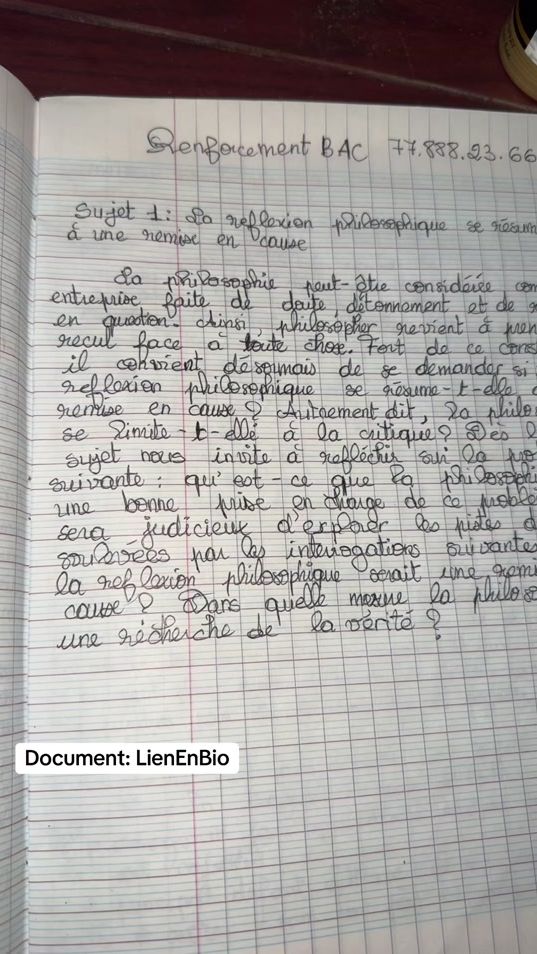 Renforcement BAC 77.888.23.66
Sujet 1: La reflexion philosophique se résum
à une remise en cause
La philosophie peut-être considérée com
entreprise faite de doute, détonnement et de r
en question. Ainsi, philosopher revient à pren
recul face à toute chose. Fort de ce cons
il convient désormais de se demander si
reflexion philosophique se résume-t-elle
remise en cause? Autrement dit, la philo
se limite-t-elle à la critique? Dès l
sujet nous invite à réfléchir sur la pro
suivante: qu'est-ce que la philosophi
une bonne prise en charge de ce problè
sera judicieux d'explorer les pistes d
soulevées par les interrogations suivantes
la reflexion philosophique serait une rem
cause? Dans quelle mesure la philoso
une récherche de la vérité?
Document: LienEnBio